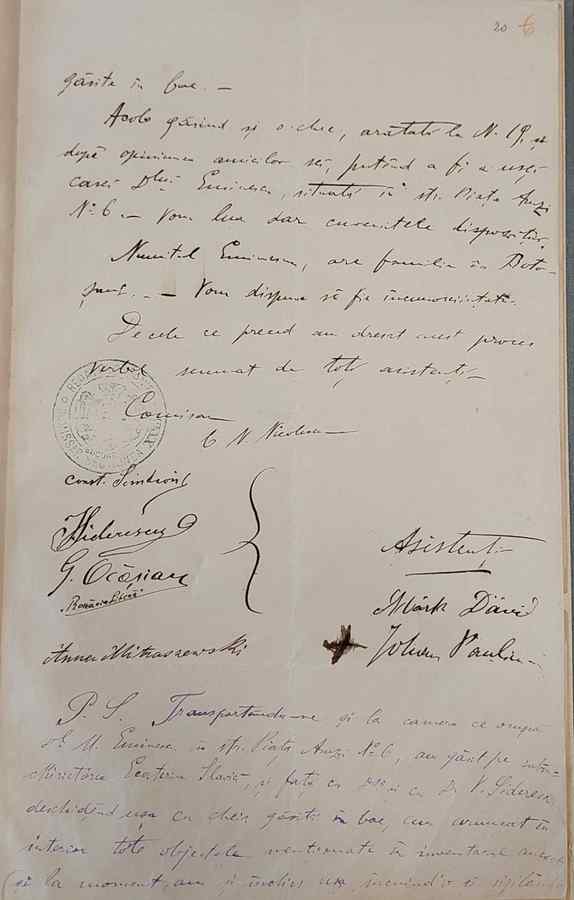 20 6
găsite în bae. —
Acolo găsind și o cheie, arătată la N. 19, și
după opiniunea amicilor săi, putând a fi a ușei
casei Dlui Eminescu, situată în str. Piața Amzi
N° 6 — Vom lua dar cuvenitele dispoziții.
Numitul Eminescu, are familia în Boto-
șani. — Vom dispune să fie încunosciințată.
De cele ce preced am dresat acest proces
verbal semnat de toți asistenți —
Comisar
C N Nicolescu
Const. Simtion
Siderescu
G. Ocășianu
"România Liberă"
Anna Mitraszewski
Asistenți
Márk Dávid
Johan Paulini
P. S. Transportându-ne și la camera ce ocupa
Dl M. Eminescu în str. Piața Amzi N° 6, am găsit pe
Ecaterina Slavici, și față cu D-sa și cu Dr V. Siderescu
deschidend ușa cu cheia găsită în bae, am aruncat în
interior tote objectele menționate în inventarul
(și la moment, am și închis ușa, încuind-o și sigilând